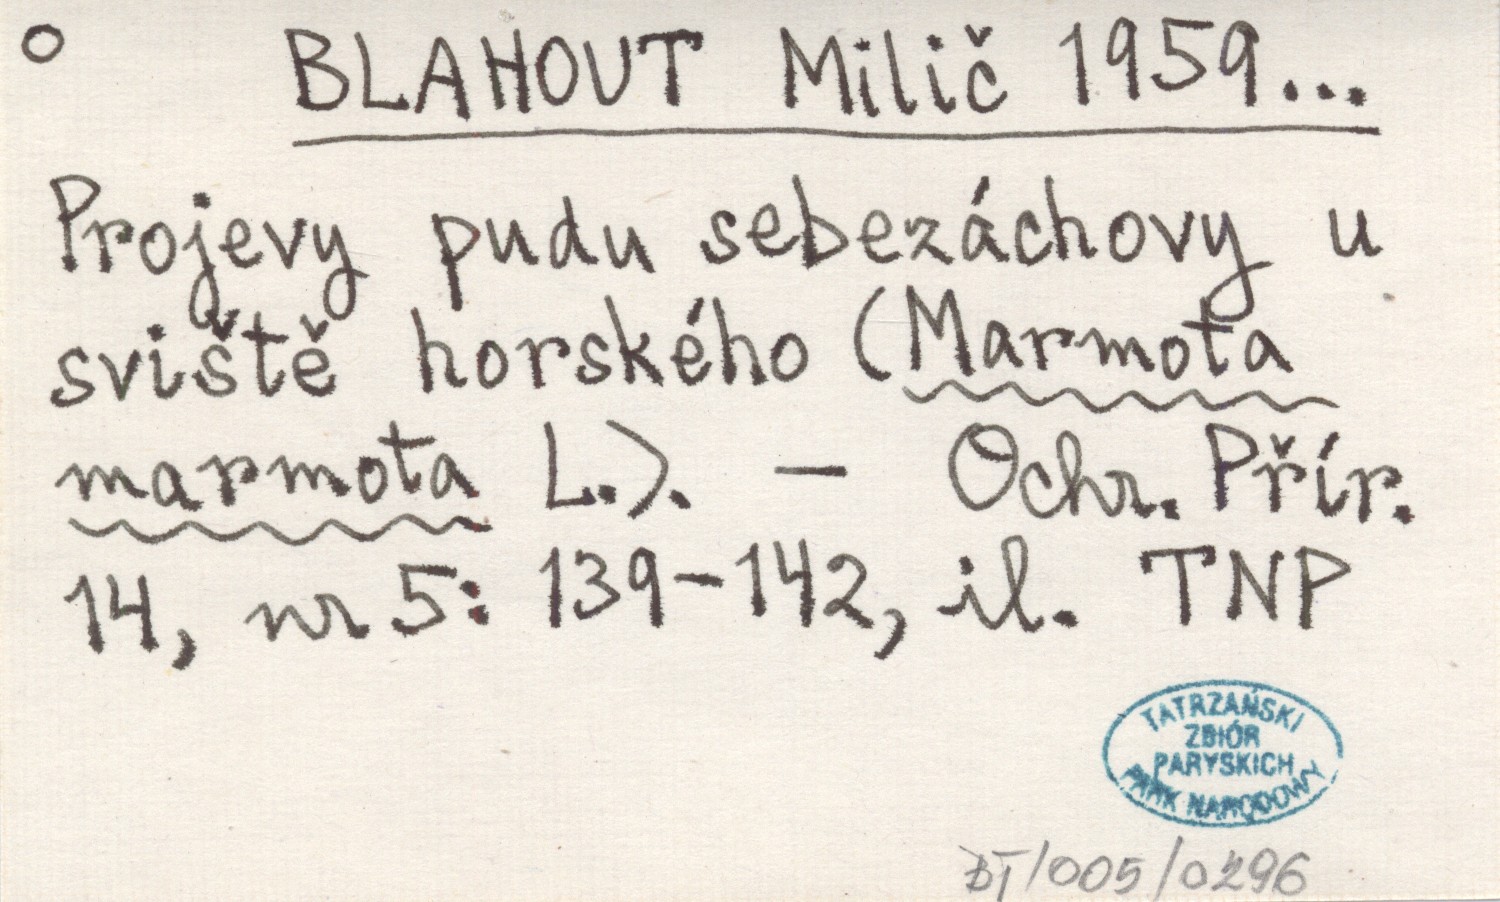 o BLAHOUT Milič 1959...
Projevy pudu sebezáchovy u
sviště horského (Marmota
marmota L.). – Ochr. Přír.
14, nr 5: 139–142, il. TNP
TATRZAŃSKI
ZBIÓR
PARYSKICH
PARK NARODOWY
BT/005/0296